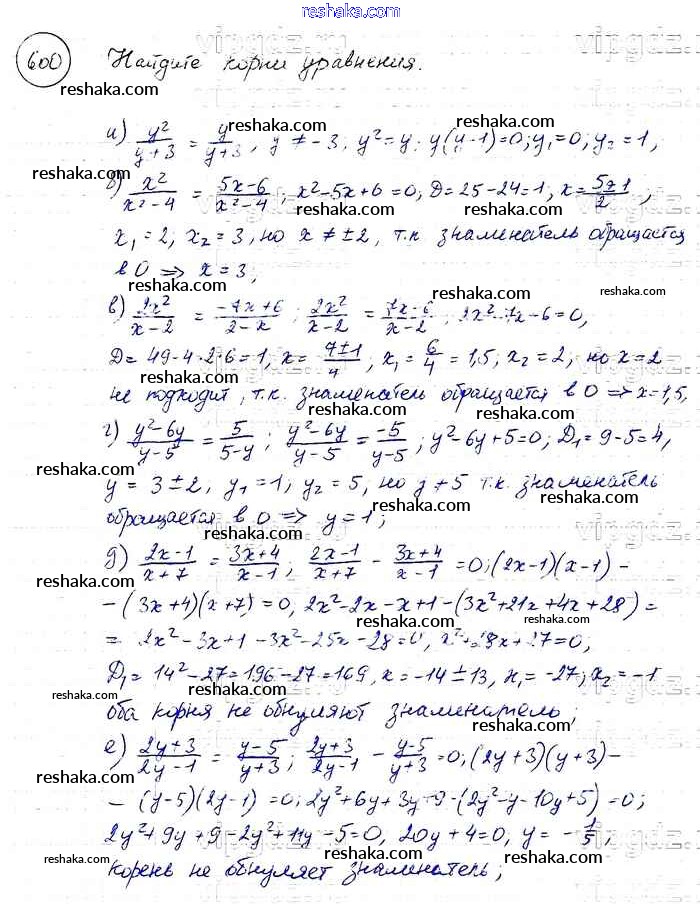 reshaka.com
600 Найдите корни уравнения.
а) y²/(y+3) = y/(y+3), y ≠ -3; y² = y; y(y-1)=0; y₁=0; y₂=1,
б) x²/(x²-4) = (5x-6)/(x²-4); x²-5x+6=0, D=25-24=1, x=(5±1)/2,
x₁=2; x₂=3, но x≠±2, т.к знаменатель обращается
в 0 ⇒ x=3;
в) 2x²/(x-2) = (-7x+6)/(2-x); 2x²/(x-2) = (7x-6)/(x-2); 2x²-7x-6=0,
D=49-4·2·6=1, x=(7±1)/4, x₁=6/4=1,5; x₂=2, но x=2
не подходит, т.к. знаменатель обращается в 0 ⇒ x=1,5,
г) (y²-6y)/(y-5) = 5/(5-y); (y²-6y)/(y-5) = -5/(y-5); y²-6y+5=0; D₁=9-5=4,
y=3±2, y₁=1; y₂=5, но y≠5 т.к. знаменатель
обращается в 0 ⇒ y=1;
д) (2x-1)/(x+7) = (3x+4)/(x-1); (2x-1)/(x+7) - (3x+4)/(x-1) =0; (2x-1)(x-1)-
-(3x+4)(x+7)=0, 2x²-2x-x+1-(3x²+21x+4x+28)=
=2x²-3x+1-3x²-25x-28=0, x²+28x+27=0,
D₁=14²-27=196-27=169, x=-14±13, x₁=-27; x₂=-1
оба корня не обнуляют знаменитель;
е) (2y+3)/(2y-1) = (y-5)/(y+3); (2y+3)/(2y-1) - (y-5)/(y+3) =0; (2y+3)(y+3)-
-(y-5)(2y-1)=0; 2y²+6y+3y+9-(2y²-y-10y+5)=0;
2y²+9y+9-2y²+11y-5=0, 20y+4=0, y=-1/5,
корень не обнуляет знаменатель;